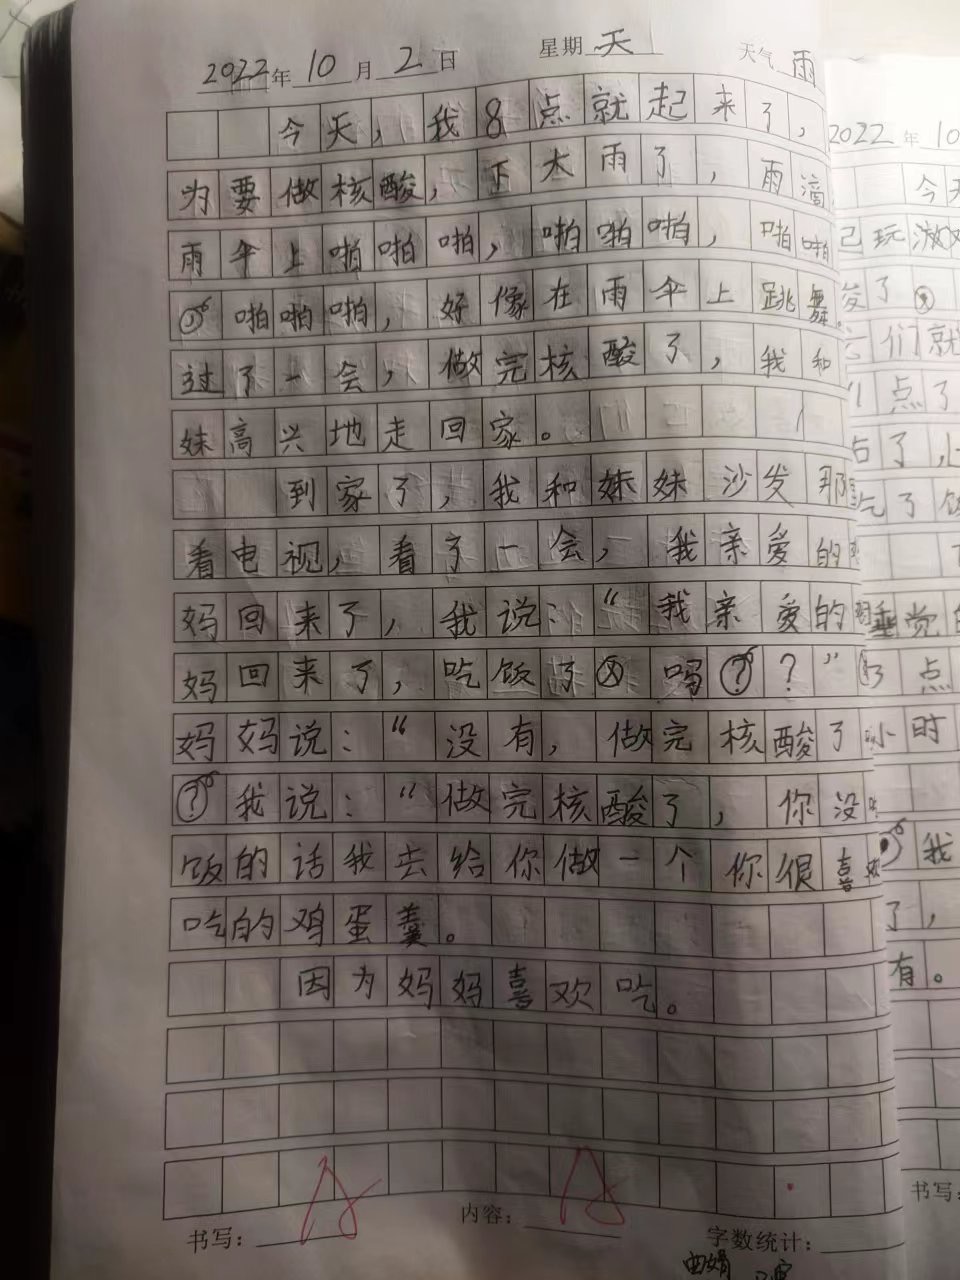 2022年 10 月 2 日 星期 天 天气 雨
今天，我8点就起来了，
为要做核酸，下大雨了，雨滴
雨伞上啪啪啪，啪啪啪，啪啪
啪啪啪，好像在雨伞上跳舞。
过了一会，做完核酸了，我和
妹高兴地走回家。
到家了，我和妹妹沙发那
看电视，看了一会，我亲爱的
妈回来了，我说：“我亲爱的
妈回来了，吃饭了吗？”
妈妈说：“没有，做完核酸了
我说：“做完核酸了，你没
饭的话我去给你做一个你很喜
吃的鸡蛋羹。
因为妈妈喜欢吃。
A A
书写： 内容： 字数统计：
2022 年 10
今天
己玩游戏
发了
们就
点了
了，
吃了饭
睡觉的
了点
小时
我
了，
有。
书写：